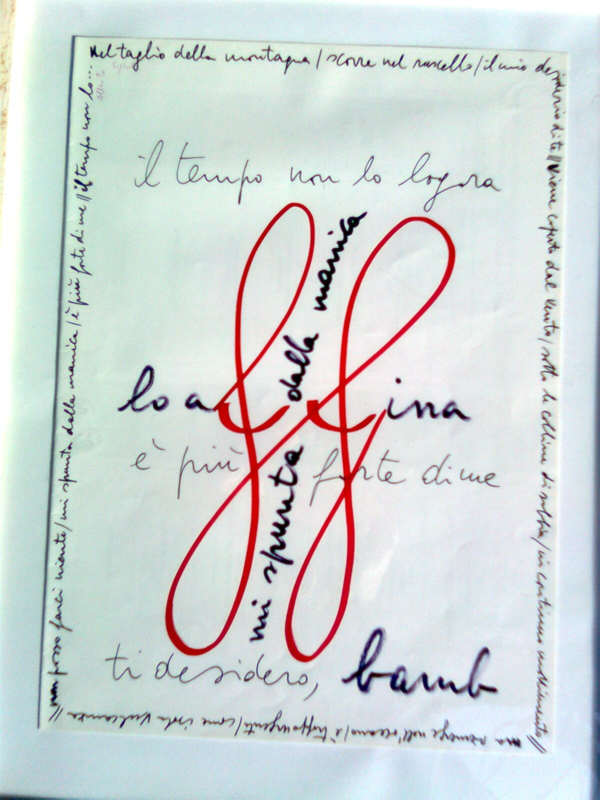 Nel taglio della montagna / scorre nel ruscello / il mio desiderio di te //
Viene coperto dal vento / sotto le colline di sabbia / in continuo movimento //
ma riemerge nell'oceano / è troppo urgente / come isola vulcanica //
non posso farci niente / mi spunta dalla manica / è più forte di me // il tempo non lo...
il tempo non lo logora
lo affina
mi spunta dalla manica
è più forte di me
ti desidero, bamb